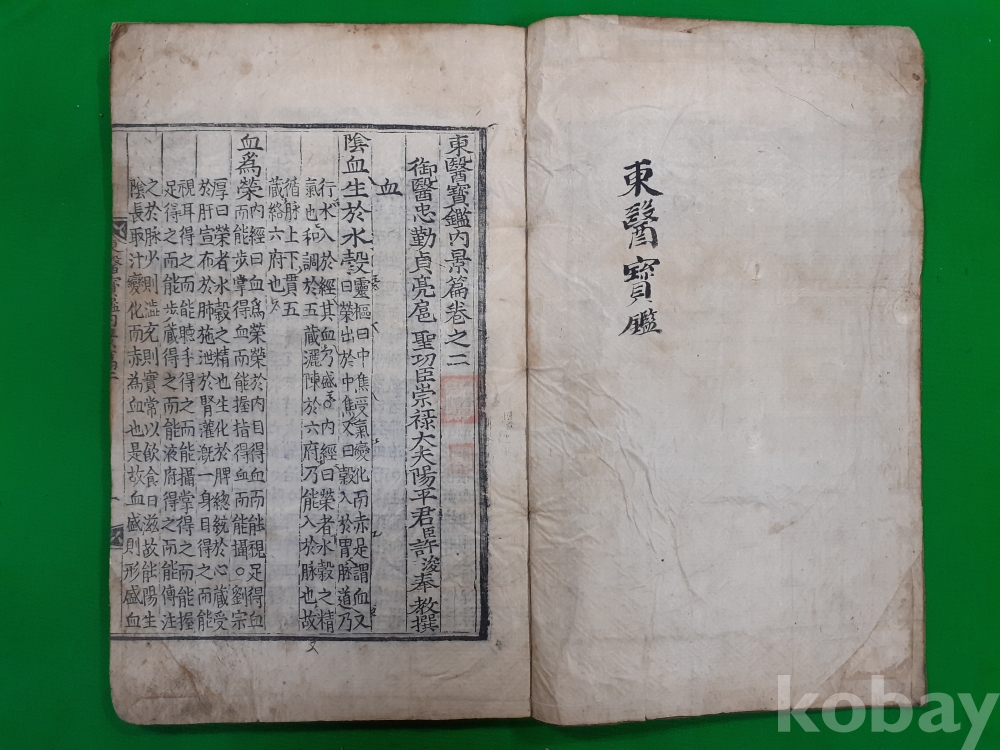 東醫寶鑑
東醫寶鑑內景篇卷之二
御醫忠勤貞亮扈聖功臣崇祿大夫陽平君臣許浚奉教撰
血
陰血生於水穀靈樞曰中焦受氣變化而赤是謂血又
曰榮出於中焦又曰穀入於胃脉道乃
行水入於經其血乃盛○內經曰榮者水穀之精
氣也和調於五藏灑陳於六府乃能入於脉也故
循脉上下貫五
藏絡六府也
血爲榮內經曰血爲榮榮於內目得血而能視足得血
而能步掌得血而能握指得血而能攝○劉宗
厚曰榮者水穀之精也生化於脾總統於心藏受
於肝宣布於肺施泄於腎灌漑一身目得之而能
視耳得之而能聽手得之而能攝掌得之而能握
足得之而能步藏得之而能液府得之而能傳注
之於脉少則澁充則實常以飮食日滋故能陽生
陰長取汁變化而赤為血也是故血盛則形盛血
kobay